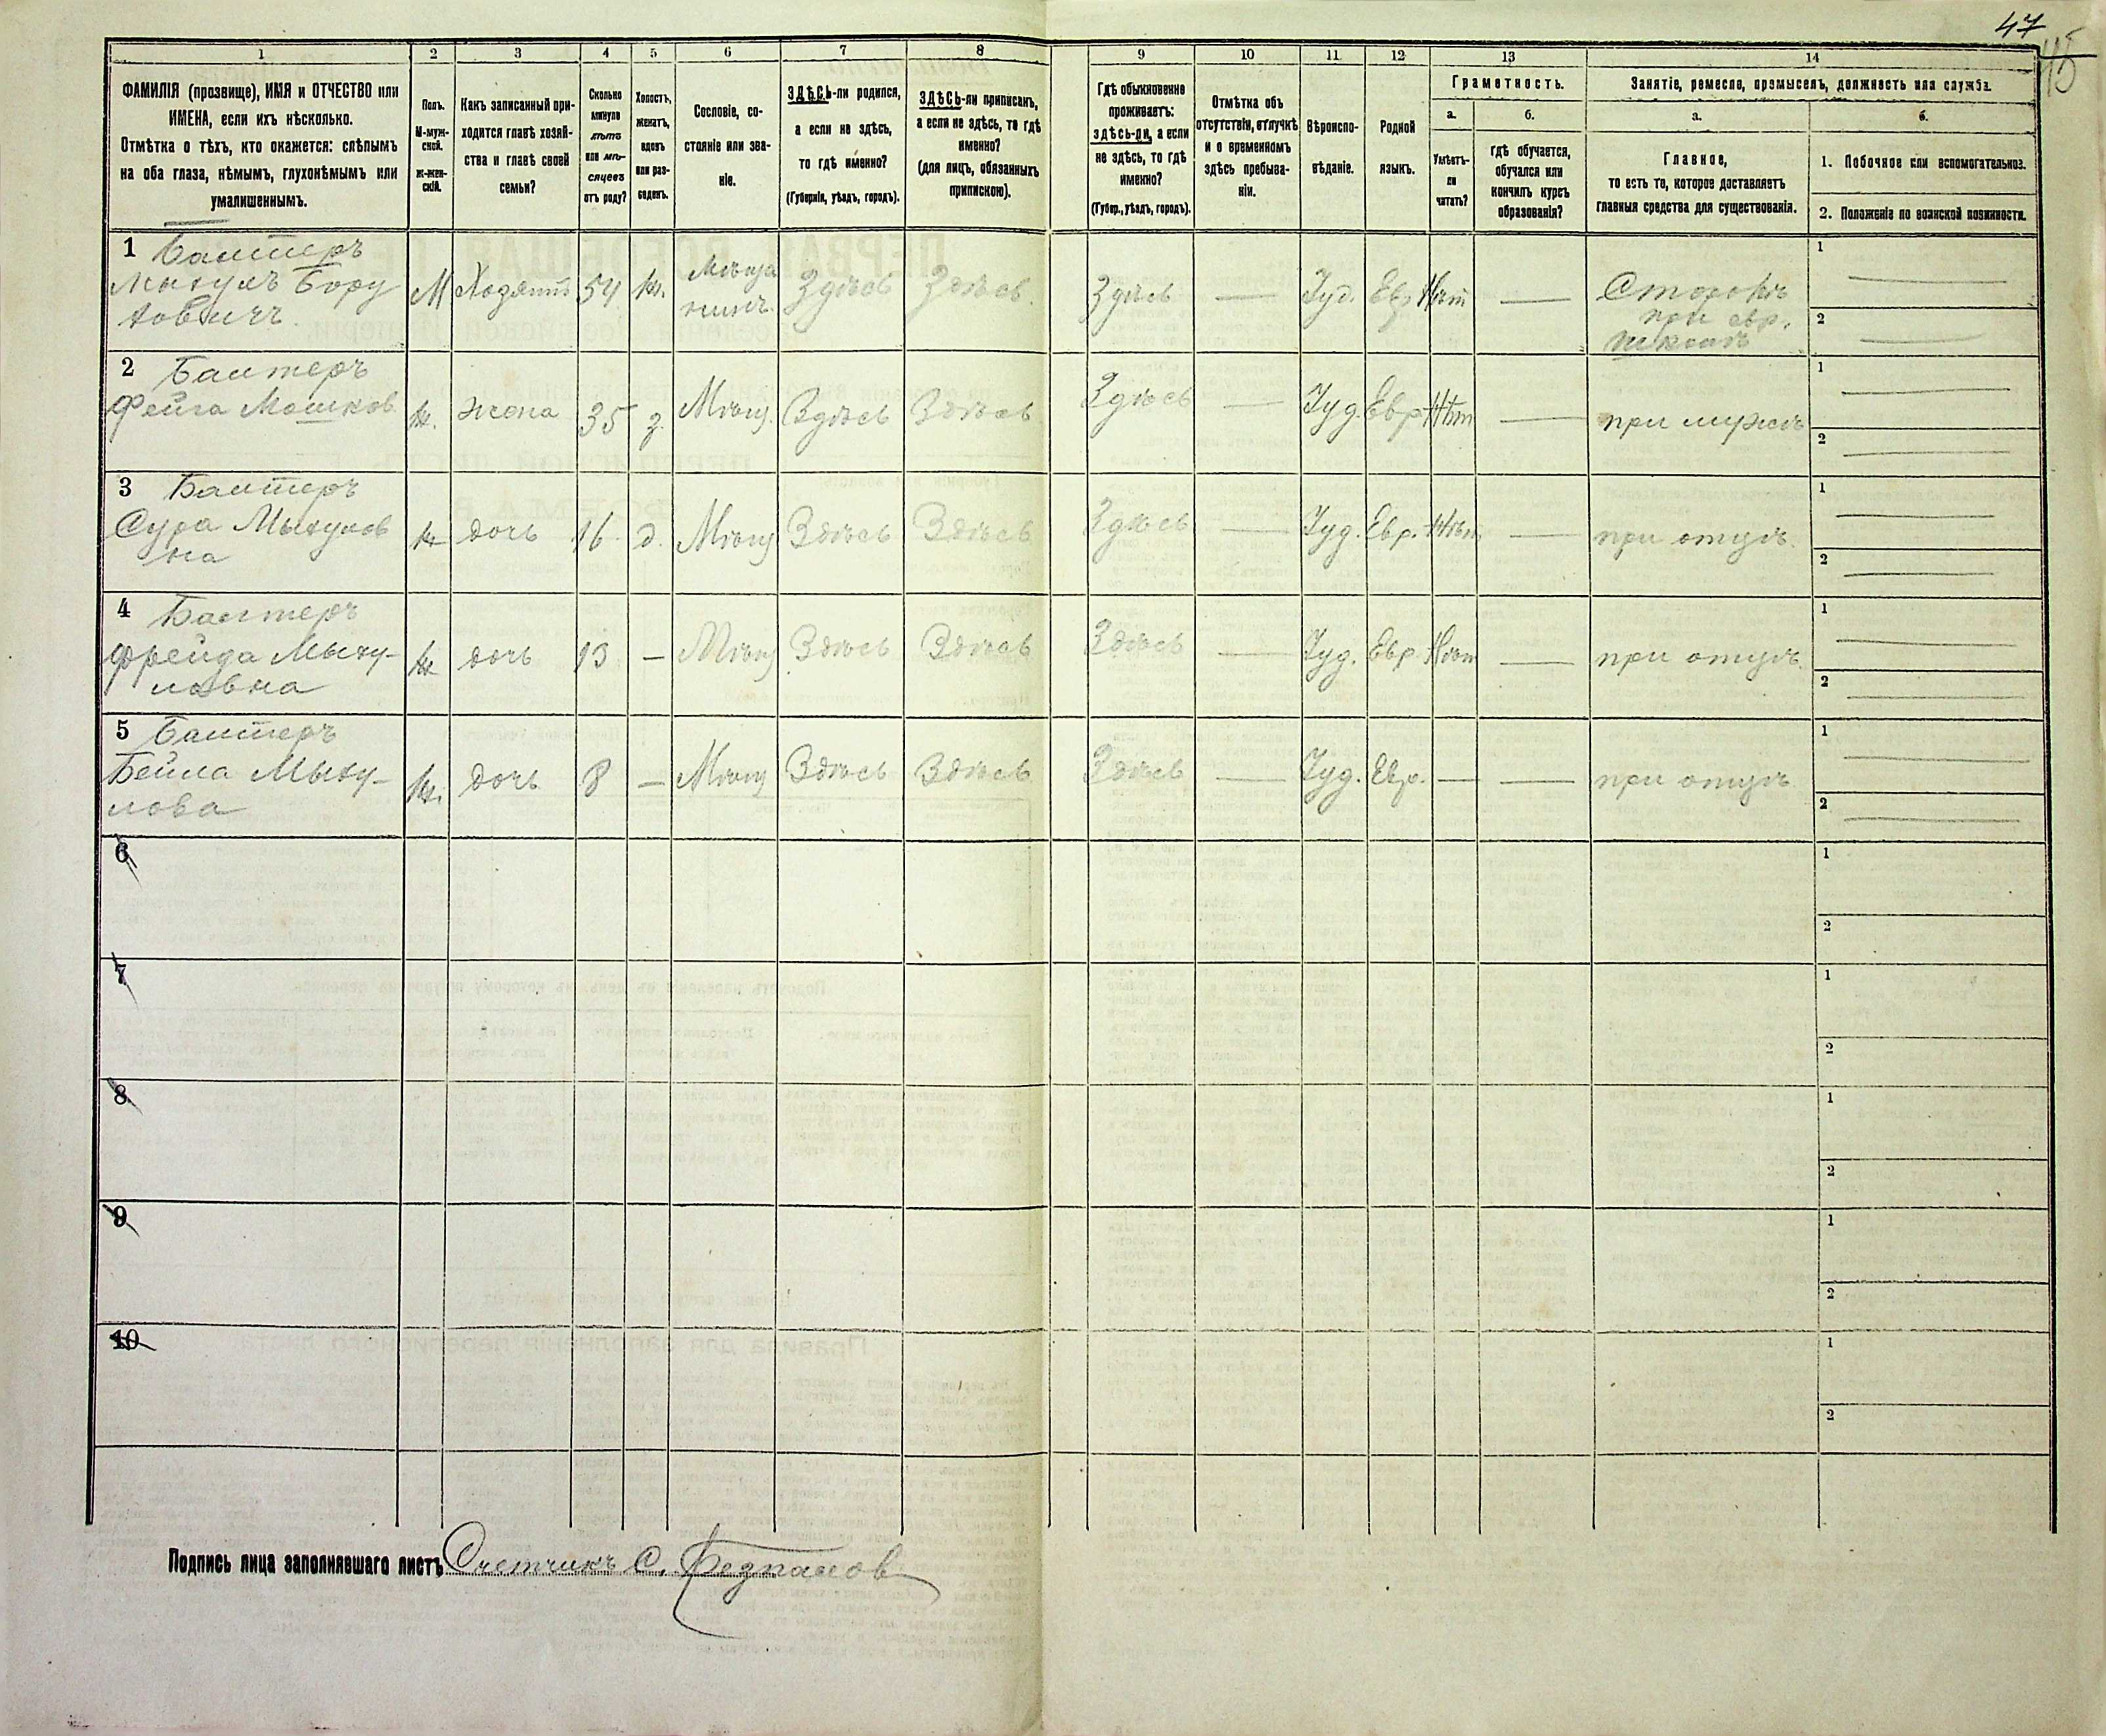 47
45
1 2 3 4 5 6 7 8 9 10 11 12 13 14
ФАМИЛІЯ (прозвище), ИМЯ и ОТЧЕСТВО или
ИМЕНА, если ихъ нѣсколько.
Отмѣтка о тѣхъ, кто окажется: слѣпымъ
на оба глаза, нѣмымъ, глухонѣмымъ или
умалишеннымъ.
Полъ.
М-муж-
ской.
Ж-жен-
скій.
Какъ записанный при-
ходится главѣ хозяй-
ства и главѣ своей
семьи?
Сколько
минуло
лѣтъ
или мѣ-
сяцевъ
отъ роду?
Холостъ,
женатъ,
вдовъ
или раз-
веденъ.
Сословіе, со-
стояніе или зва-
ніе.
ЗДѢСЬ-ли родился,
а если не здѣсь,
то гдѣ именно?
(Губернія, уѣздъ, городъ).
ЗДѢСЬ-ли приписанъ,
а если не здѣсь, то гдѣ
именно?
(для лицъ, обязанныхъ
припискою).
Гдѣ обыкновенно
проживаетъ:
здѣсь-ли, а если
не здѣсь, то гдѣ
именно?
(Губер., уѣздъ, городъ).
Отмѣтка объ
отсутствіи, отлучкѣ
и о временномъ
здѣсь пребыва-
ніи.
Вѣроиспо-
вѣданіе.
Родной
языкъ.
Грамотность.
а. б.
Умѣетъ-
ли
читать?
гдѣ обучается,
обучался или
кончилъ курсъ
образованія?
Занятіе, ремесло, промыселъ, должность или служба.
а. б.
Главное,
то есть то, которое доставляетъ
главныя средства для существованія.
1. Побочное или вспомогательное.
2. Положеніе по воинской повинности.
1 Балтеръ
Мыхулъ Бору
ховичъ
М Хозяинъ 54 ж. Мѣща
нинъ Здѣсь Здѣсь Здѣсь — Іуд. Евр Нѣт — Сторожъ
при евр.
школѣ
1 —
2 —
2 Балтеръ
Фейга Мошков
ж. жена 35 з. Мѣщ. Здѣсь Здѣсь Здѣсь — Іуд. Евр Нѣт — при мужѣ
1 —
2 —
3 Балтеръ
Сура Мыхулов
на
ж дочь 16 д. Мѣщ Здѣсь Здѣсь Здѣсь — Іуд. Евр. Нѣт — при отцѣ
1 —
2 —
4 Балтеръ
Фрейда Мыху-
ловна
ж дочь 13 — Мѣщ Здѣсь Здѣсь Здѣсь — Іуд. Евр Нѣт — при отцѣ
1 —
2 —
5 Балтеръ
Бейла Мыху-
лова
ж. дочь 8 — Мѣщ Здѣсь Здѣсь Здѣсь — Іуд. Евр. — — при отцѣ
1 —
2 —
6 1
2
7 1
2
8 1
2
9 1
2
10 1
2
Подпись лица заполнявшаго листъ Счетчикъ С.